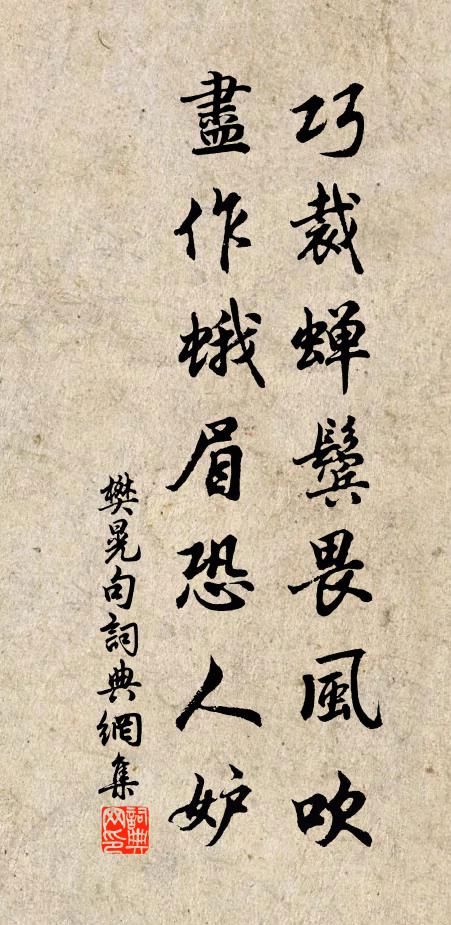 巧裁蝉鬓畏風吹
盡作蛾眉恐人妒
樊晃句詞典網集
詞典網印